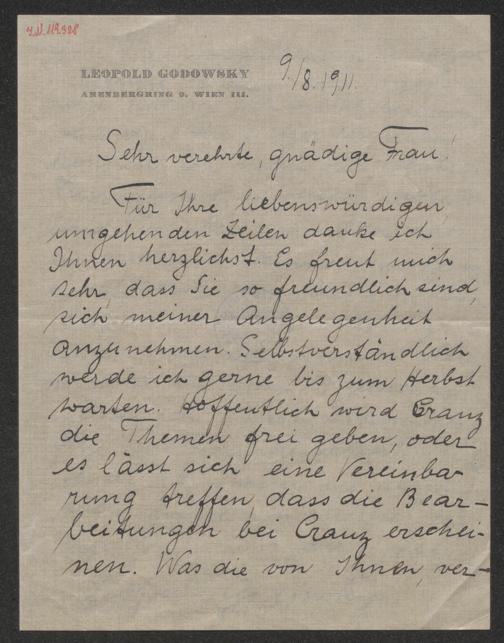 I.N. 119.308
LEOPOLD GODOWSKY
ARENBERGRING 9. WIEN III.
9./8. 1911.
Sehr verehrte, gnädige Frau!
Für Ihre liebenswürdigen
umgehenden Zeilen danke ich
Ihnen herzlichst. Es freut mich
sehr, dass Sie so freundlich sind,
sich meiner Angelegenheit
anzunehmen. Selbstverständlich
werde ich gerne bis zum Herbst
warten. Hoffentlich wird Cranz
die Themen frei geben, oder
es lässt sich eine Vereinba-
rung treffen, dass die Bear-
beitungen bei Cranz erschei-
nen. Was die von Ihnen, ver-